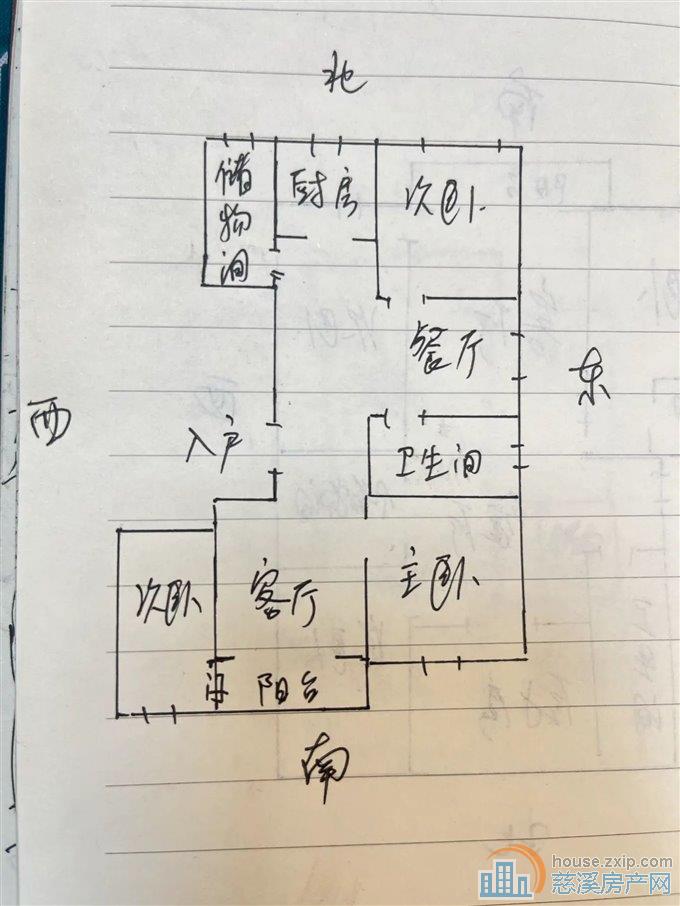 北
储物间
厨房
次卧
餐厅
东
西
入户
卫生间
次卧
客厅
主卧
阳台
南
house.zxip.com
慈溪房产网